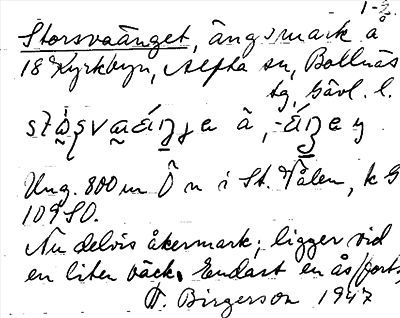 1-2
Storsvaänget, ängsmark å
18 Kyrkbyn, Alfta sn, Bollnäs
tg, Gävl. l.
Ung. 800 m Ö n i St. Tålen, k G
109 SO.
Nu delvis åkermark; ligger vid
en liten bäck. Endast en ås (forts.
T. Birgerson 1947